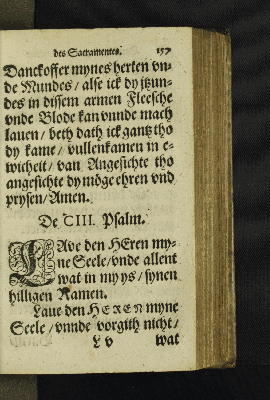 des Sacramentes. 157
Danckoffer mynes herten vn-
de Mundes / alse ick dy jtzun-
des in dissem armen Fleesche
vnde Blode kan vnnde mach
lauen / beth dath ick gantz tho
dy kame / vullenkamen in e-
wichelt / van Angesichte tho
angesichte dy möge ehren vnd
prysen / Amen.
De CIII. Psalm.
LAve den HEren my-
ne Seele / vnde allent
wat in my ys / synen
hilligen Namen.
Laue den HEREN myne
Seele / vnnde vorgith nicht /
L v wat